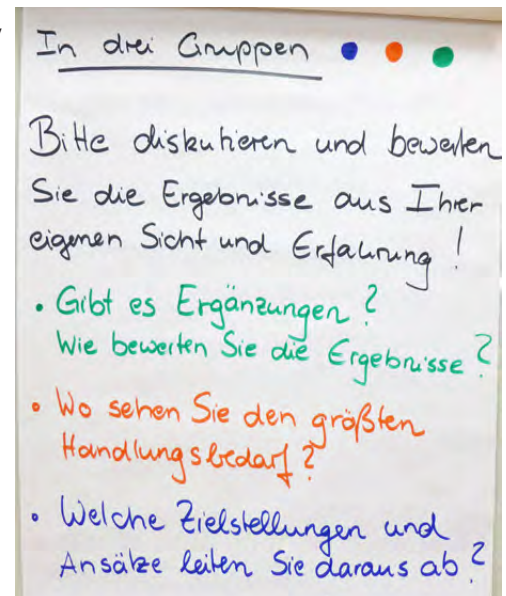 In drei Gruppen
Bitte diskutieren und bewerten
Sie die Ergebnisse aus Ihrer
eigenen Sicht und Erfahrung!
• Gibt es Ergänzungen?
Wie bewerten Sie die Ergebnisse?
• Wo sehen Sie den größten
Handlungsbedarf?
• Welche Zielstellungen und
Ansätze leiten Sie daraus ab?